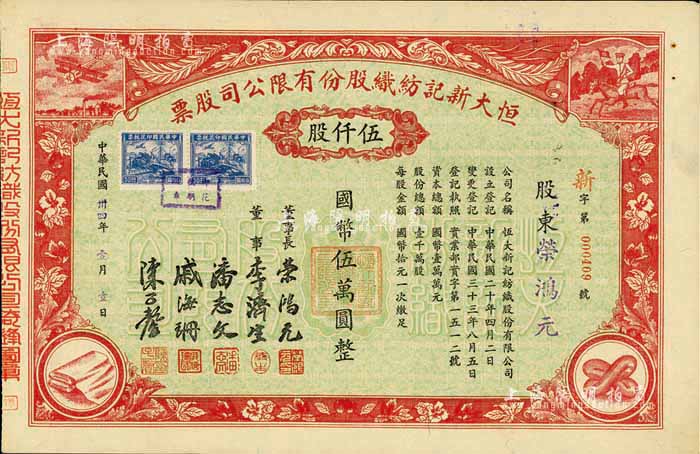 上海陽明拍賣
恒大新記紡織股份有限公司股票
伍仟股
新字第000409號
股東榮鴻元
公司名稱 恆大新記紡織股份有限公司
設立登記 中華民國二十年四月二日
變更登記 中華民國三十三年八月五日
登記執照 實業部實字第一五一二號
資本總額 國幣壹萬萬元
股份總額 壹千萬股
每股金額 國幣拾元一次繳足
國幣伍萬圓整
董事長 榮鴻元
董事 李濟生
潘志文
戚海珊
中華民國卅四年壹月壹日
中華民國印花稅票
中華民國印花稅票